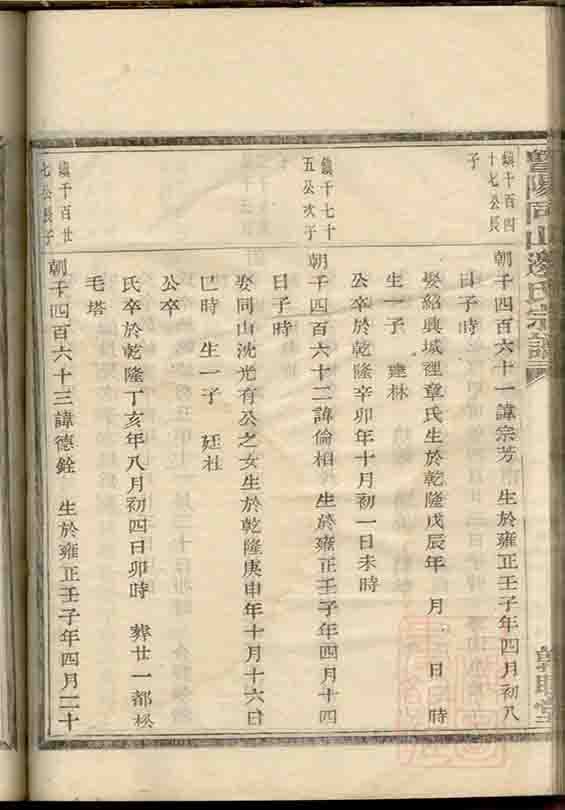 暨陽同山邊氏宗譜
鎮千百四
十七公長
子
朝千四百六十一諱宗芳 生於雍正壬子年四月初八
日子時
娶紹興城裡章氏生於乾隆戊辰年 月 日 時
生一子 建林
公卒於乾隆辛卯年十月初一日未時
鎮千七十
五公次子
朝千四百六十二諱倫相 生於雍正壬子年四月十四
日子時
娶同山沈光有公之女生於乾隆庚申年十月十六日
巳時 生一子 廷社
公卒
氏卒於乾隆丁亥年八月初四日卯時 葬廿一都松
毛塔
鎮千百廿
七公長子
朝千四百六十三諱德銓 生於雍正壬子年四月二十